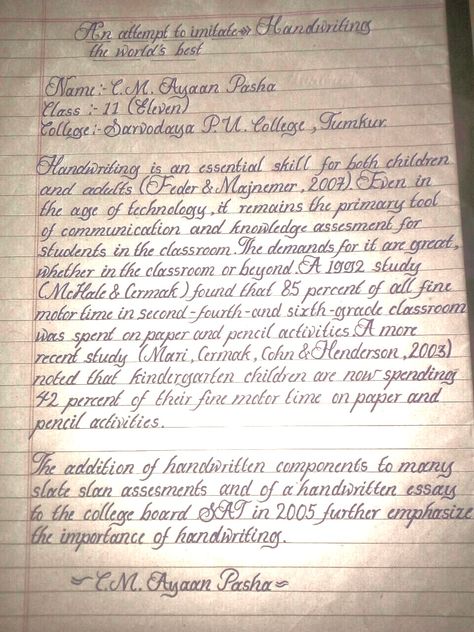 An attempt to imitate Handwriting
the world's best
Name:- C.M. Ayaan Pasha
Class :- 11 (Eleven)
College:- Sarvodaya P.U. College, Tumkur.
Handwriting is an essential skill for both children
and adults (Feder & Majnemer, 2007). Even in
the age of technology, it remains the primary tool
of communication and knowledge assesment for
students in the classroom. The demands for it are great,
whether in the classroom or beyond. A 1992 study
(McHale & Cermak) found that 85 percent of all fine
motor time in second-fourth-and sixth-grade classroom
was spent on paper and pencil activities. A more
recent study (Mari, Cermak, Cohn & Henderson, 2003)
noted that kindergarten children are now spending
42 percent of their fine motor time on paper and
pencil activities.
The addition of handwritten components to many
state slan assesments and of a handwritten essay
to the college board SAT in 2005 further emphasize
the importance of handwriting.
~ C.M. Ayaan Pasha ~